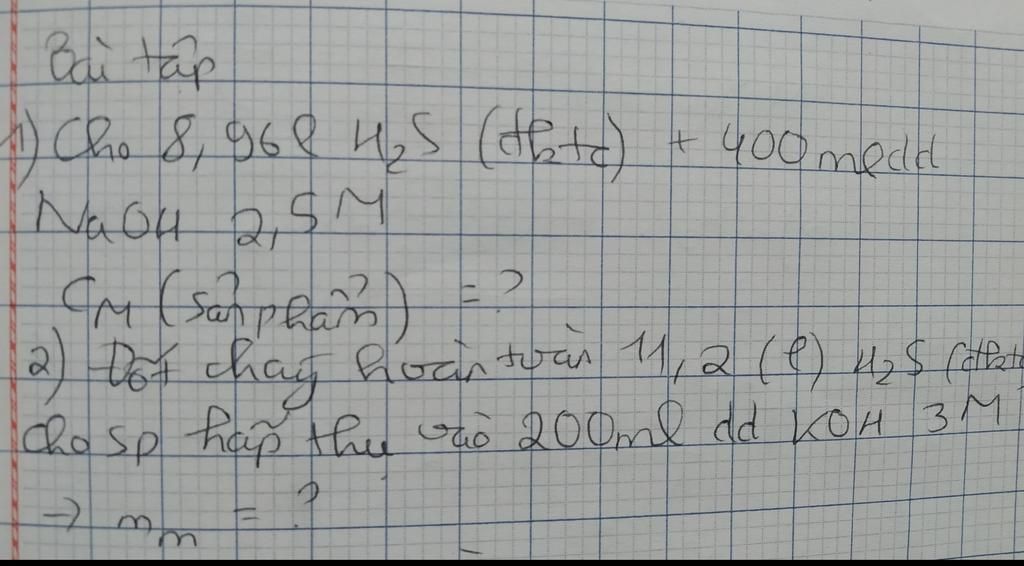 Bài tập
1) Cho 8,96l H₂S (đktc) + 400ml dd
NaOH 2,5M
CM (sản phẩm) = ?
2) Đốt cháy hoàn toàn 11,2 (l) H₂S (đkt
cho sp hấp thụ vào 200ml dd KOH 3M
→ mm = ?